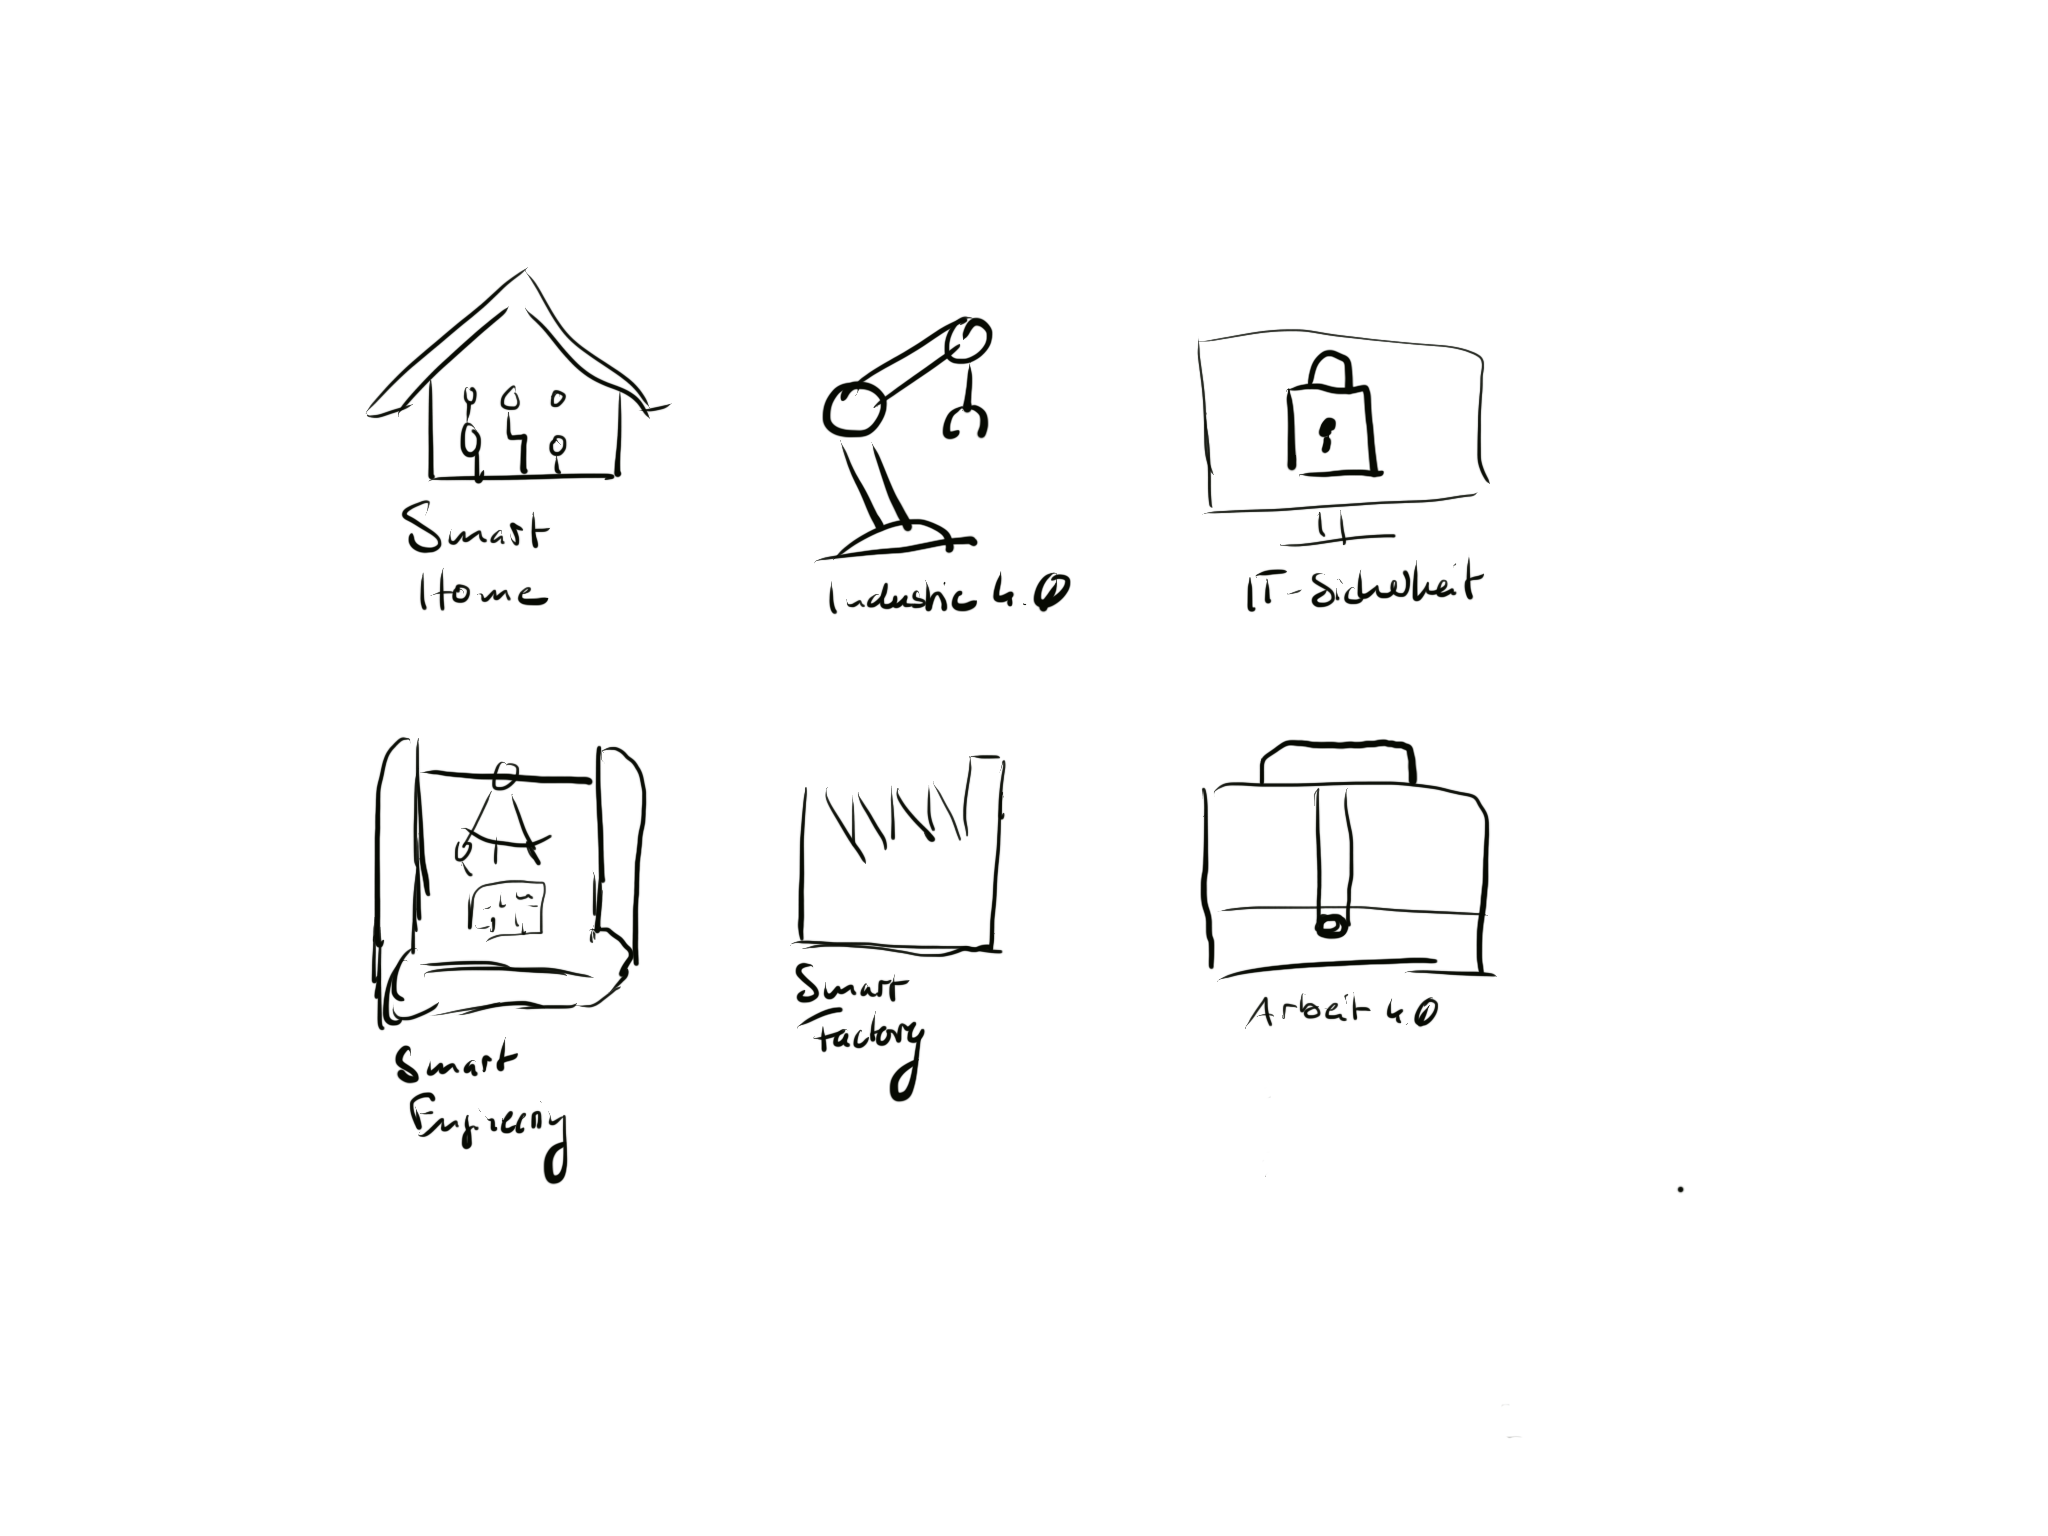 Smart
Home
Industrie 4.0
IT-Sicherheit
Smart
Engineering
Smart
Factory
Arbeit 4.0